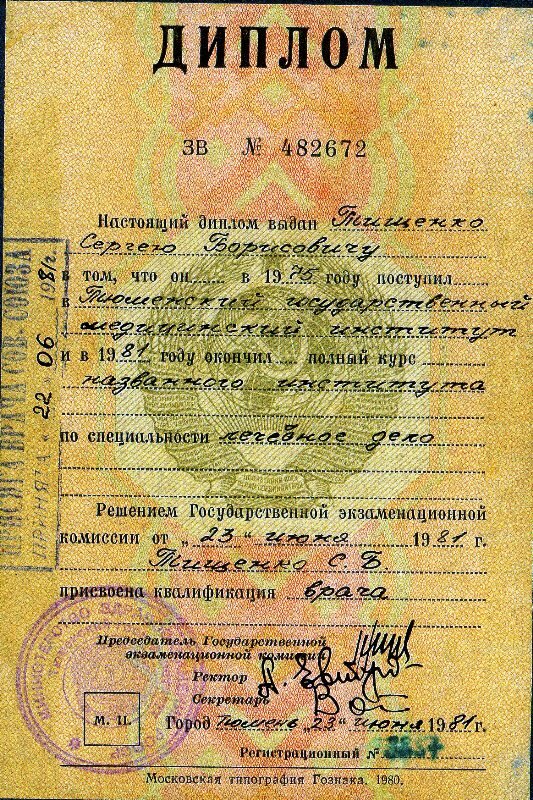 ДИПЛОМ
ЗВ № 482672
Настоящий диплом выдан Тищенко
Сергею Борисовичу
в том, что он в 1975 году поступил
в Тюменский государственный
медицинский институт
и в 1981 году окончил полный курс
названного института
по специальности лечебное дело
Решением Государственной экзаменационной
комиссии от „23“ июня 1981 г.
Тищенко С.Б
присвоена квалификация врача
Председатель Государственной
экзаменационной комиссии
Ректор
Секретарь
М. П.
Город Тюмень „23“ июня 1981 г.
Регистрационный №
Московская типография Гознака. 1980.
ПРИСЯГА ВРАЧА СОВ. СОЮЗА
ПРИНЯТА „22“ 06 1981г.